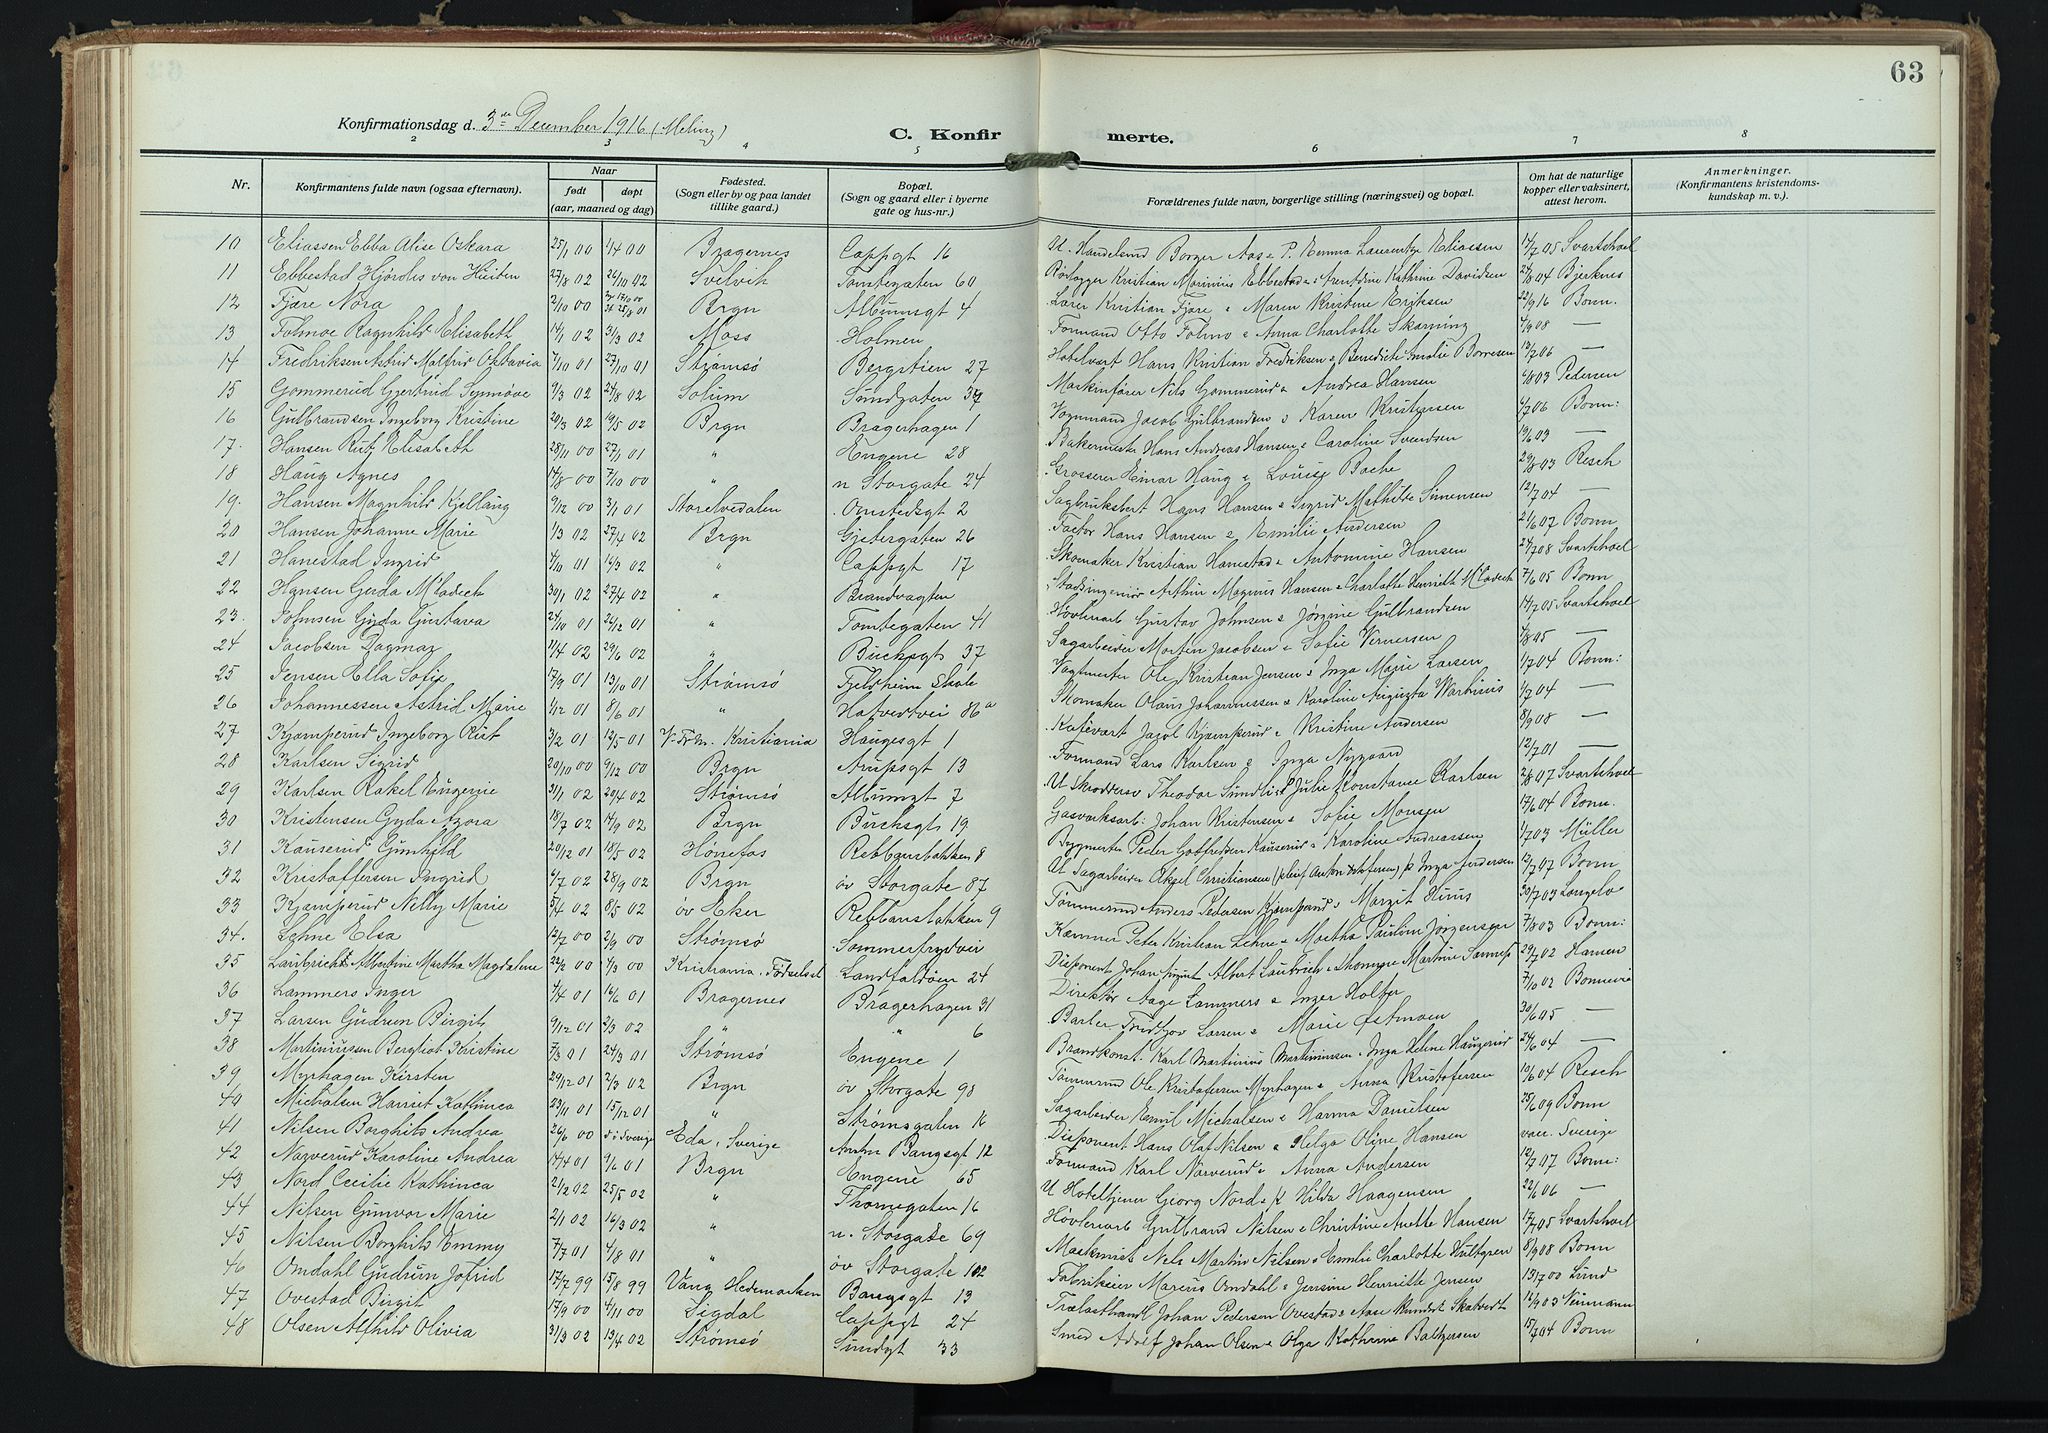 63
Konfirmationsdag d. 3de December 1916 (Meling)
C. Konfirmerte.
2 3 4 5 6 7 8
Nr. Konfirmantens fulde navn (ogsaa efternavn). Naar født døpt (aar, maaned og dag) Fødested. (Sogn eller by og paa landet tillike gaard.) Bopæl. (Sogn og gaard eller i byerne gate og hus-nr.) Forældrenes fulde navn, borgerlige stilling (næringsvei) og bopæl. Om hat de naturlige kopper eller vaksinert, attest herom. Anmerkninger. (Konfirmantens kristendomskundskap m. v.).
10 Eliassen Ebba Alise Oskara 25/1 00 1/4 00 Bragernes Cappgt 16 U. Handelsmd Borger Aas & P. Emma Laurentze Eliassen 14/7 05 Svartshoel
11 Ebbestad Hjørdis von Huiten 27/8 02 26/10 02 Svelvik Tomtegaten 60 Kristian Marinius Ebbestad & Kathrine Davidsen 24/8 04 Bjerknes
12 Fjære Nora 2/10 00 Brgn Albumsgt 4 Lærer Kristian Fjære & Maren Kristine Eriksen 22/9 16 Bonn.
13 Folmoe Ragnhild Elisabeth 14/1 02 3/3 02 Moss Holmen Formand Otto Folmo & Anna Charlotte Skarning 4/9 08 —
14 Fredriksen Astrid Malfrid Oktavia 7/10 01 27/10 01 Strømsø Bergstien 27 Hotelvært Hans Kristian Fredriksen & Benedicte Amalie Borresen 13/7 06 —
15 Gommerud Gjertrud Synnøve 9/3 02 24/8 02 Solum Sundgaten 39 Maskinfører Nils Gommerud & Andrea Hansen 4/8 03 Pedersen
16 Gulbrandsen Ingeborg Kristine 20/3 02 19/5 02 Brgn Bragerhagen 1 Vognmand Jacob Gulbrandsen & Karen Kristensen 4/7 06 Bonn:
17. Hansen Rut Elisabeth 28/11 00 27/1 01 " Engene 28 Bakermester Hans Andreas Hansen & Caroline Svendsen 19/6 03 —
18 Haug Agnes 14/8 00 7/10 00 " n Storgate 24 Grosserer Einar Haug & Louise Bache 29/8 03 Resch
19. Hansen Magnhild Kjellaug 9/12 00 3/1 01 Storelvedalen Omstedsgt 2 Sagbruksbest Hans Hansen & Sigrid Mathilde Simensen 12/7 04 —
20 Hansen Johanne Marie 1/3 02 27/4 02 Brgn Gjetergaten 26 Factor Hans Hansen & Emilie Andersen 21/6 07 Bonn
21 Hanestad Ingrid 4/10 01 16/3 02 " Cappgt 17 Skomaker Kristian Hanestad & Antonmine Hansen 24/7 08 Svartshoel
22 Hansen Gerda M'Ladech 30/1 02 27/4 02 " Brandvagten Stadsingeniør Arthur Magnus Hansen & Charlotte Henriette M'Ladech 7/6 05 Bonn
23. Johnsen Gyda Gustava 24/10 01 26/12 01 " Tomtegaten 41 Høvleriarb Gustav Johnsen & Jørgine Gulbrandsen 14/7 05 Svartshoel
24 Jacobsen Dagmar 11/4 02 29/6 02 " Buchsgt 37 Sagarbeider Morten Jacobsen & Sofie Vernersen 4/8 05 —
25 Jensen Ella Sofie 17/9 01 13/10 01 Strømsø Fjeldheim Skole Vagtmester Ole Kristian Jensen & Inga Marie Larsen 1/7 04 Bonn:
26 Johannessen Astrid Marie 1/12 01 8/6 01 " Hotvedtvei 86a Skomaker Olaus Johannessen & Karoline Augusta Warbinis 1/7 04 —
27 Kjæmperud Ingeborg Rut 3/2 01 12/5 01 V. Frk. Kristiania Haugesgt 1 Kafevært Jacob Kjæmperud & Kristine Andersen 8/9 08 —
28 Karlsen Sigrid 20/10 00 9/12 00 Brgn Arupsgt 13 Formand Lars Karlsen & Inga Nygaard 12/7 01 —
29 Karlsen Rakel Eugenie 31/1 02 20/4 02 Strømsø Albumgt 7 U Skoddersv Theodor Sundli & Julie Konstanse Karlsen 2/8 07 Svartshoel
30 Kristensen Gyda Azora 18/7 02 14/9 02 Brgn Buchsgt 19. Gasverksarb: Johan Kristensen & Sofie Monsen 17/6 04 Bonn.
31 Kauserud Gunhild 20/12 01 18/5 02 Hønefos Rebbansbakken 8 Bygmester Peder Gotfredsen Kauserud & Karoline Andreassen 1/7 03 Müller
32 Kristoffersen Ingrid 4/7 02 28/9 02 Brgn øv Storgate 87 U Sagarbeider Aksel Christiansen (pleief Anton Kristofersen) p. Inga Andersen 12/7 07 Bonn
33 Kjæmperud Nelly Marie 5/4 02 8/5 02 øv Eker Rebbansbakken 9 Tømmermd Anders Pedersen Kjæmperud & Margit Huus 30/7 03 Longelo
34. Lehne Elsa 12/7 00 2/9 00 Strømsø Sommerfrydvei Kæmner Peter Kristian Lehne & Martha Pauline Jørgensen 7/8 03 Bonn:
35 Laubrich Albertine Martha Magdalene 22/2 00 4/3 00 Kristiania Fødselsst. Landfaldøen 24 Disponent Johan August Albert Laubrich & Thomine Martine Sannes 29/7 02 Hansen
36 Lammers Inger 4/4 01 16/6 01 Bragernes Bragerhagen 31 Direktør Aage Lammers & Inger Holter 7/10 02 Bonnevie
37 Larsen Gudrun Birgit 9/12 01 2/3 02 " " 6 Barber Fridtjov Larsen & Marie Østmoen 30/6 05 —
38 Martiniussen Bergliot Kristine 7/3 01 24/3 01 Strømsø Engene 1 Brandkonst. Karl Martinius Martiniussen & Inga Helene Haugerud 24/6 04 —
39 Myrhagen Kirsten 29/12 01 2/3 02 Brgn øv Storgate 98 Tømmermd Ole Kristofersen Myrhagen & Anna Kristofersen 10/6 04 Resch
40 Michalsen Harriet Kathinca 23/11 01 15/12 01 " Strømsgaten 16 Sagarbeider Emil Michalsen & Hanna Danielsen 25/6 09 Bonn
41 Nilsen Borghild Andrea 26/6 00 d i Sverige Eda i Sverige Anthr Bangsgt 12 Disponent Hans Olaf Nilsen & Helga Oline Hansen vac. Sverige
42 Narverud Karoline Andrea 14/4 01 9/6 01 Brgn Engene 65 Formand Karl Narverud & Anna Andersen 12/7 07 Bonn:
43 Nord Cecilie Kathinca 2/2 02 25/5 02 " Thornegaten 16 U Hoteltjener Georg Nord & p. Hilda Haagensen 22/6 06 —
44 Nilsen Gunvor Marie 2/1 02 16/3 02 " n. Storgate 69 Høvleriarb Gulbrand Nilsen & Christine Anette Hansen 17/7 05 Svartshoel
45 Nilsen Borghild Emmy 7/7 01 4/8 01 " øv Storgate 102 Maskinist Nels Martin Nilsen & Emilie Charlotte Hultgren 8/9 08 Bonn
46 Omdahl Gudrun Jofrid 17/7 99 15/8 99 Vang Hedemarken Bangsgt 13 Fabrikeier Marius Omdahl & Jensine Henriette Jensen 13/7 00 Lund
47 Ovestad Birgit 17/9 00 4/11 00 Sigdal Cappgt 24 Trælasthandl Johan Pedersen Ovestad & Aase Skatvedt 16/9 03 Neumann
48 Olsen Alfhild Olivia 31/3 02 13/4 02 Strømsø Sundgt 33 Smed Adolf Johan Olsen & Olga Kathrine Baltzersen 15/7 04 Bonn